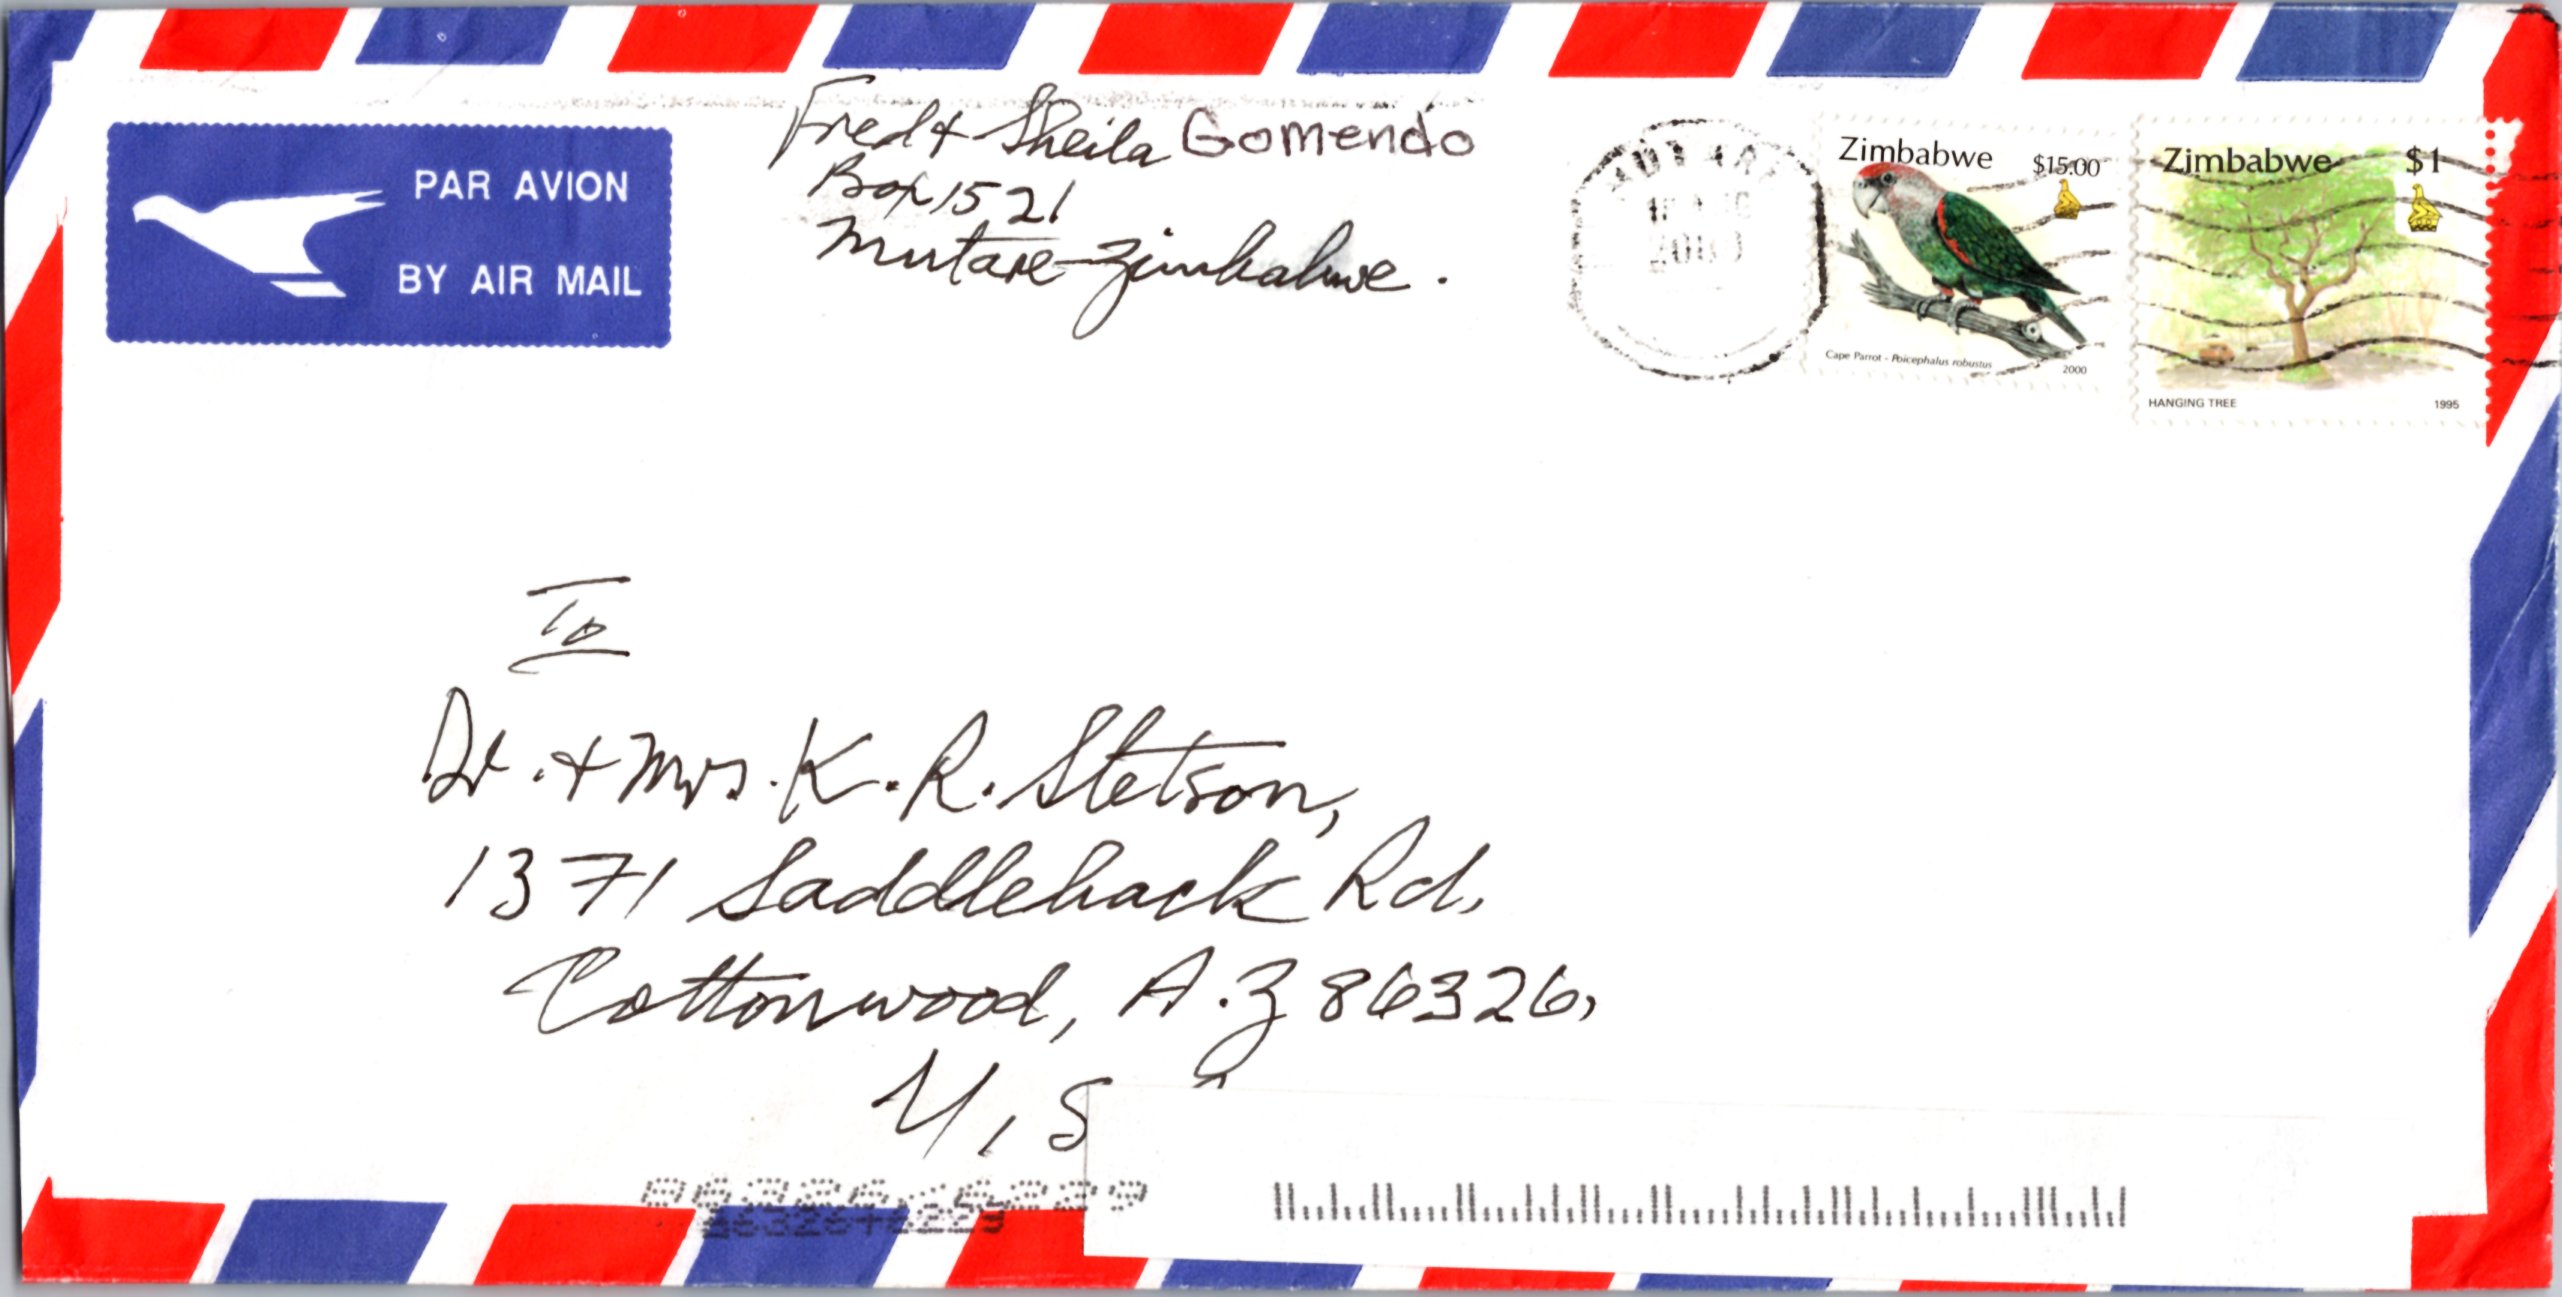 PAR AVION
BY AIR MAIL
Fred & Sheila Gomendo
Box 1521
Mutare - Zimbabwe.
MUTARE
Zimbabwe $15.00
Cape Parrot - Poicephalus robustus 2000
Zimbabwe $1
HANGING TREE 1995
To
Dr. & Mrs. K. R. Stetson,
1371 Saddleback Rd,
Cottonwood, A.Z 86326,
U, S